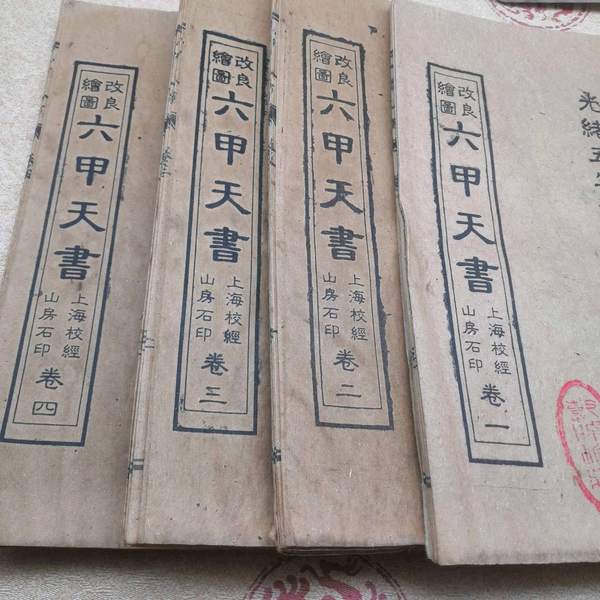 光緒五
改良
繪圖
六甲天書
上海校經
山房石印
卷一
改良
繪圖
六甲天書
上海校經
山房石印
卷二
改良
繪圖
六甲天書
上海校經
山房石印
卷三
改良
繪圖
六甲天書
上海校經
山房石印
卷四